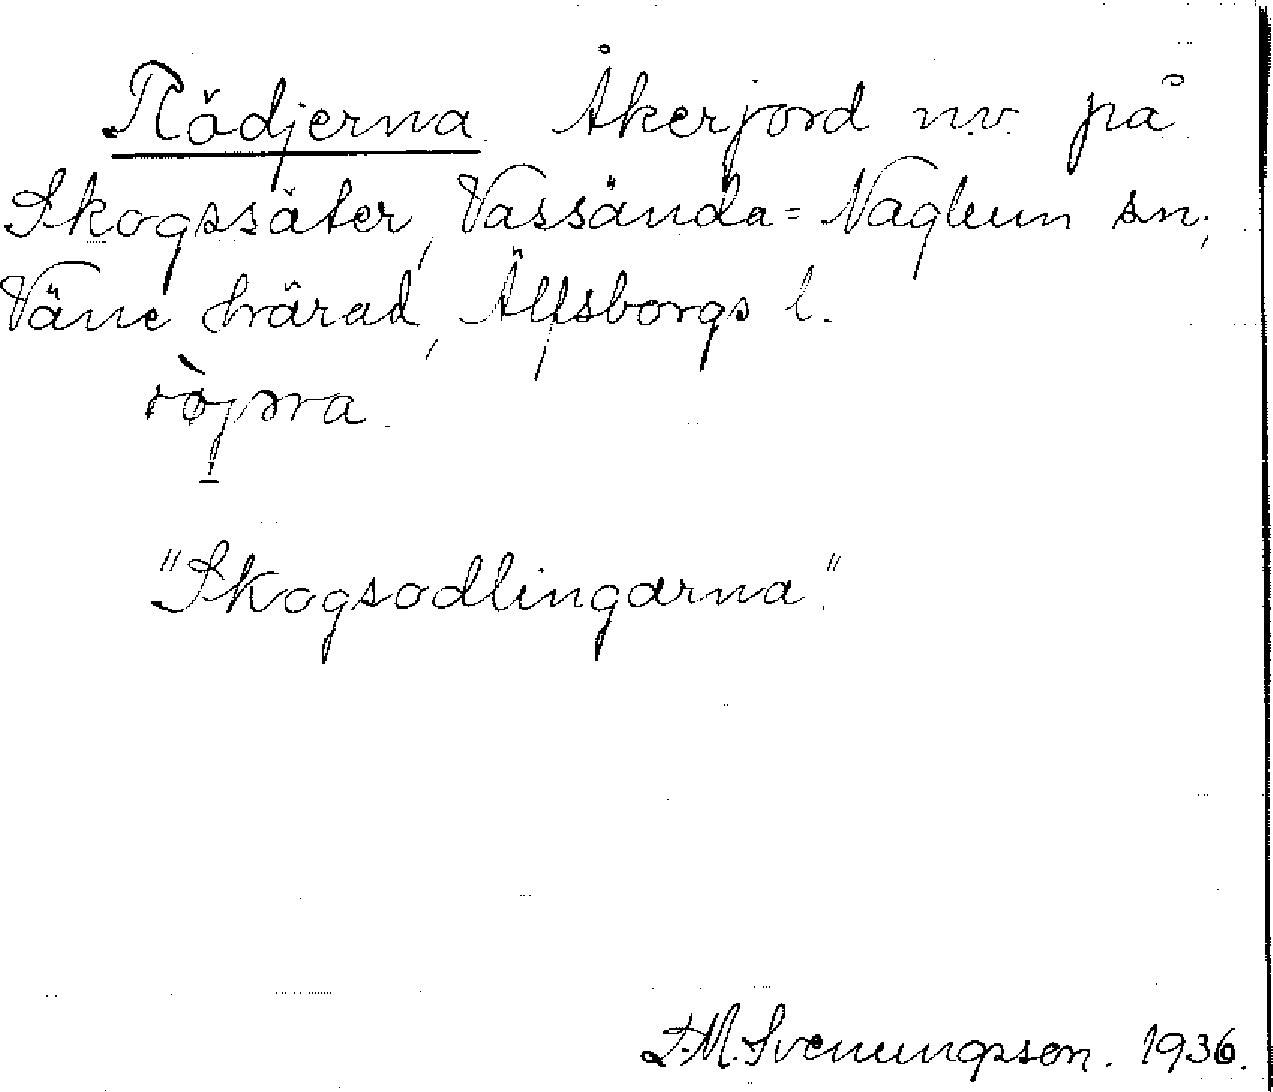 Rödjerna Åkerjord n.v. på
Skogssäter, Vassända=Naglum sn,
Väne härad, Älfsborgs l.
"Skogsodlingarna".
S.M. Svenungsson. 1936.